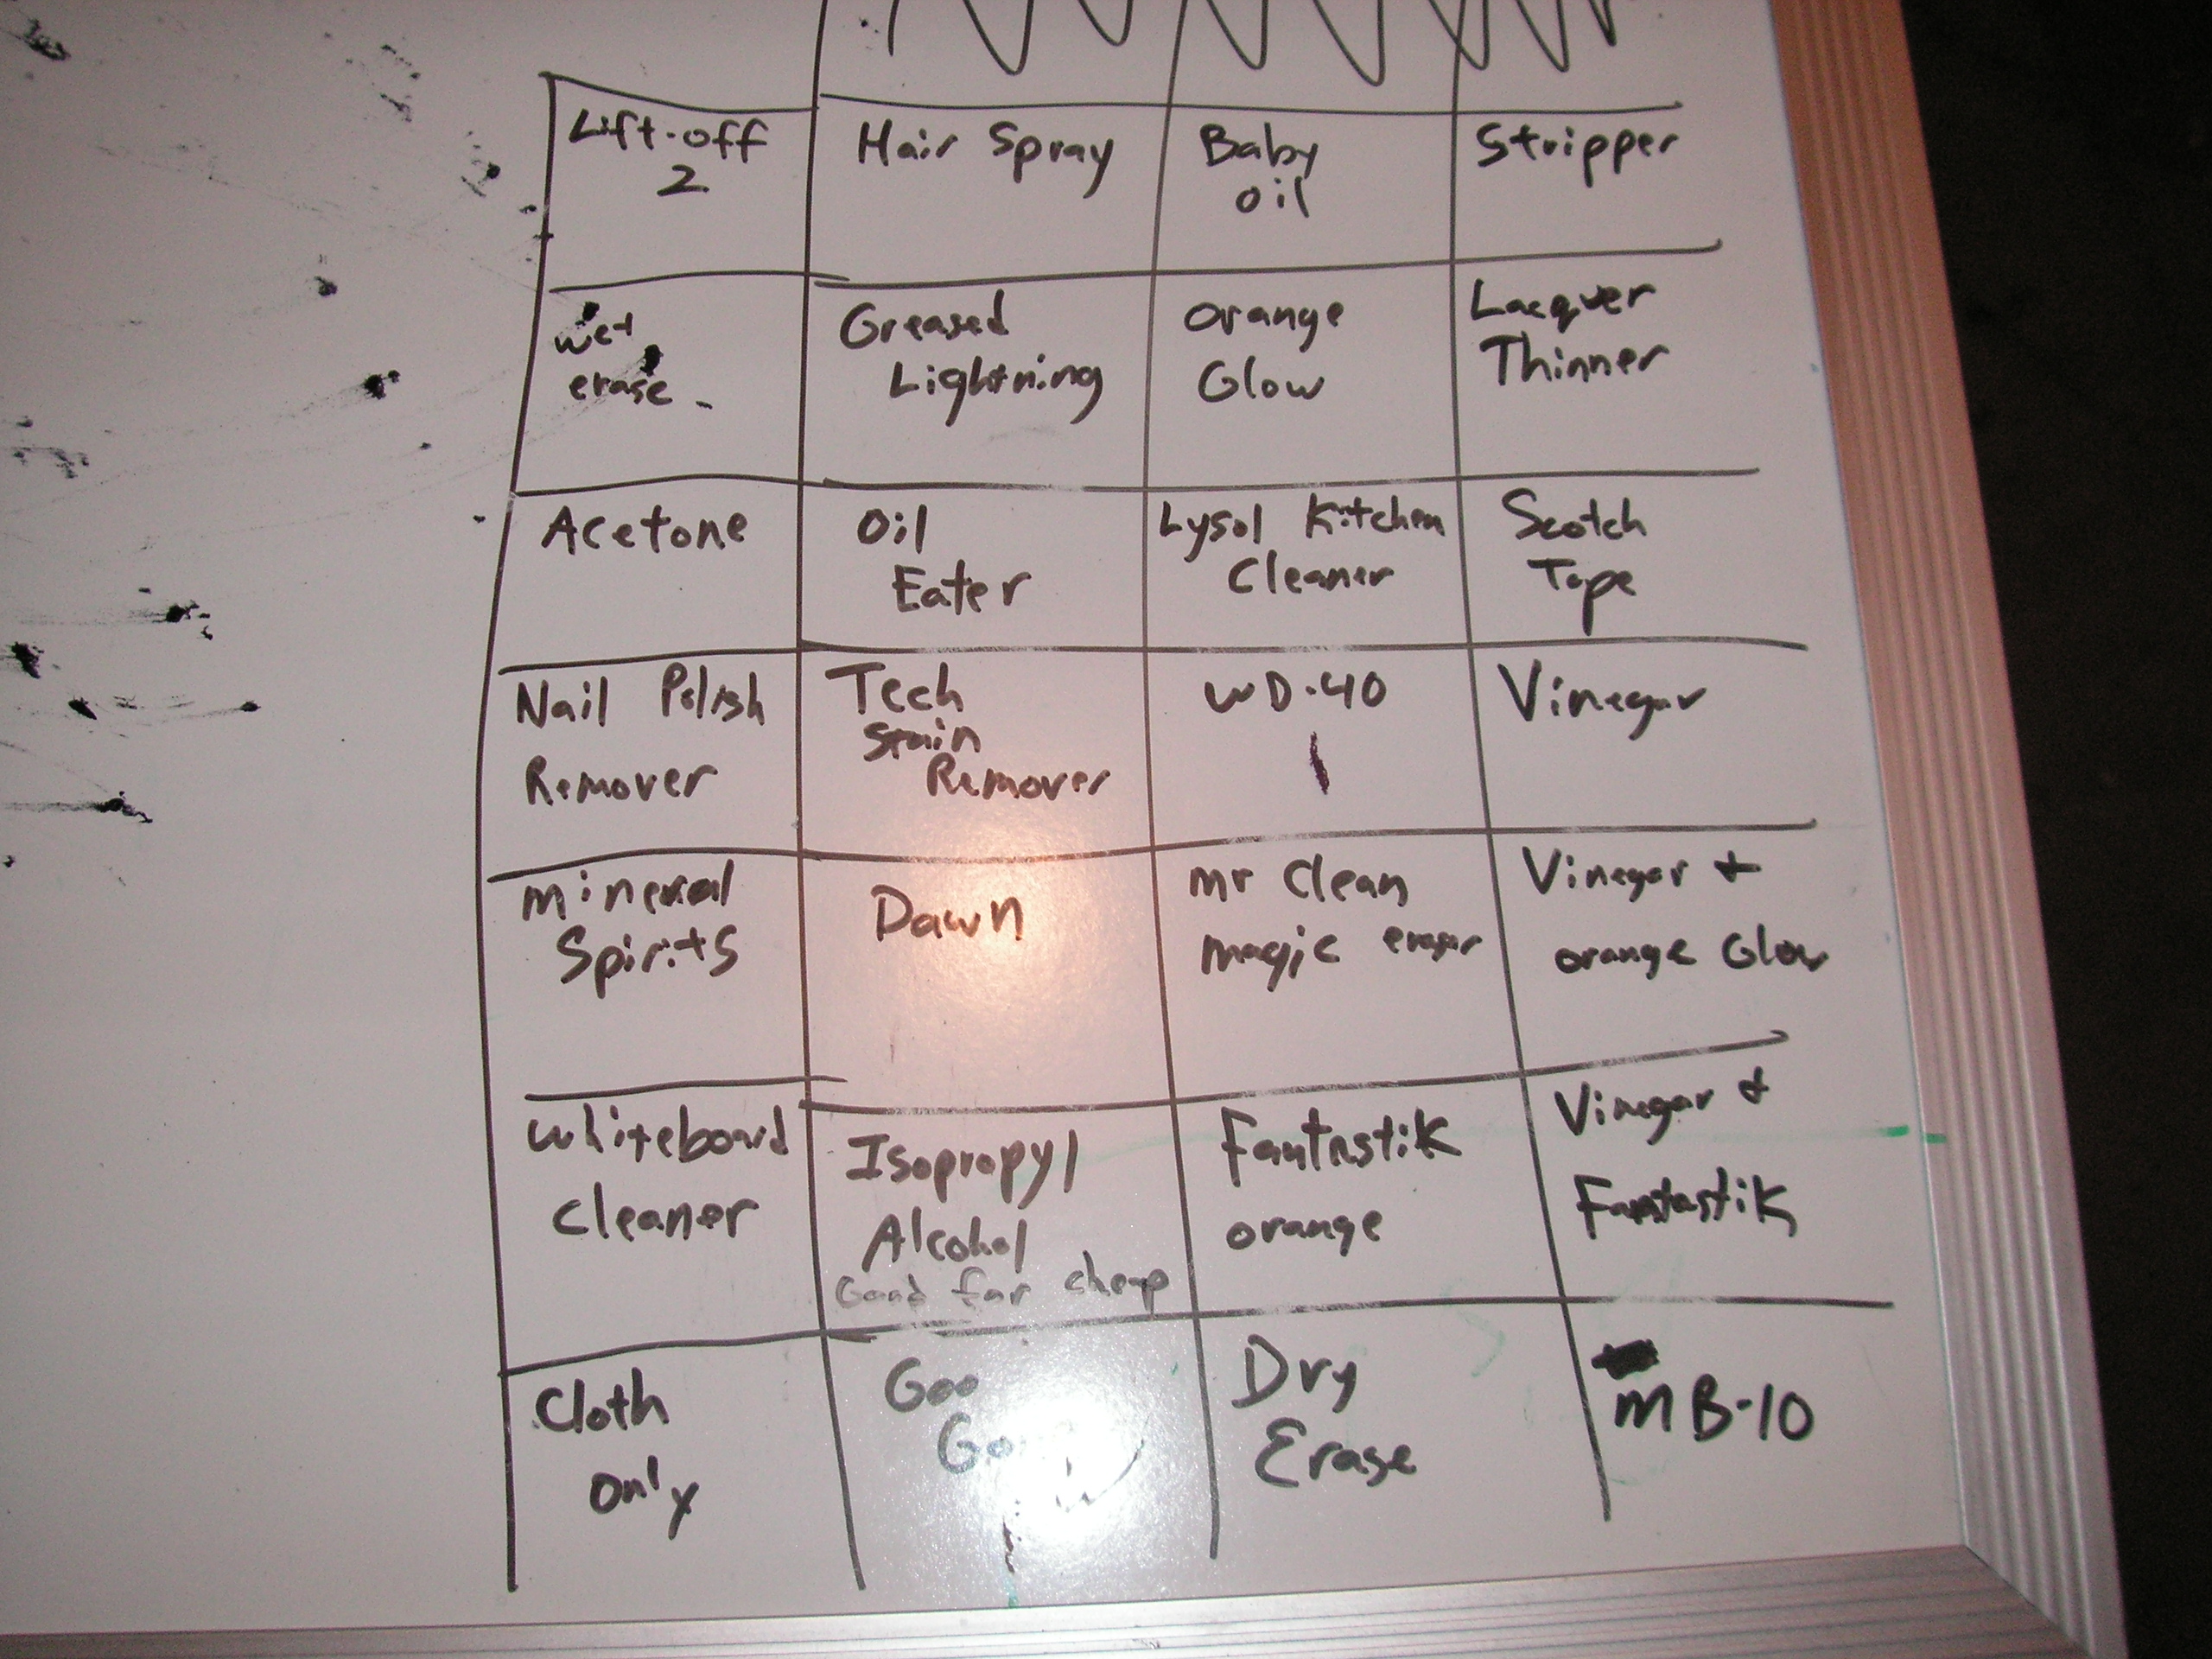 Lift-off
2
Hair Spray
Baby
oil
Stripper
wet
erase -
Greased
Lightning
Orange
Glow
Lacquer
Thinner
Acetone
Oil
Eater
Lysol Kitchen
Cleaner
Scotch
Tape
Nail Polish
Remover
Tech
Stain
Remover
WD-40
Vinegar
Mineral
Spirits
Dawn
Mr Clean
magic eraser
Vinegar +
orange Glow
Whiteboard
Cleaner
Isopropyl
Alcohol
Good for cheap
Fantastik
orange
Vinegar +
Fantastik
Cloth
only
Goo
Dry
Erase
MB-10